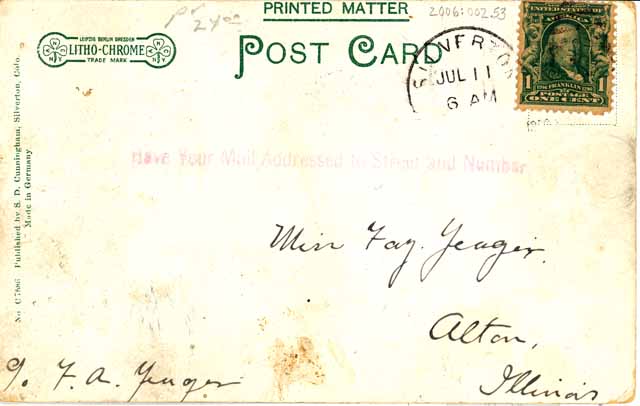 PRINTED MATTER
2006:002.53
24
LEIPZIG BERLIN DRESDEN
LITHO-CHROME
TRADE MARK
N Y
N Y
POST CARD
JUL 11
6 AM
UNITED STATES OF
AMERICA
1 FRANKLIN 1
POSTAGE
ONE CENT
Have Your Mail Addressed to Street and Number
Miss Fay. Yeager.
Alton,
Illinois
c/o F. A. Yeager
No C7686 Published by S. D. Cunningham, Silverton, Colo.
Made in Germany